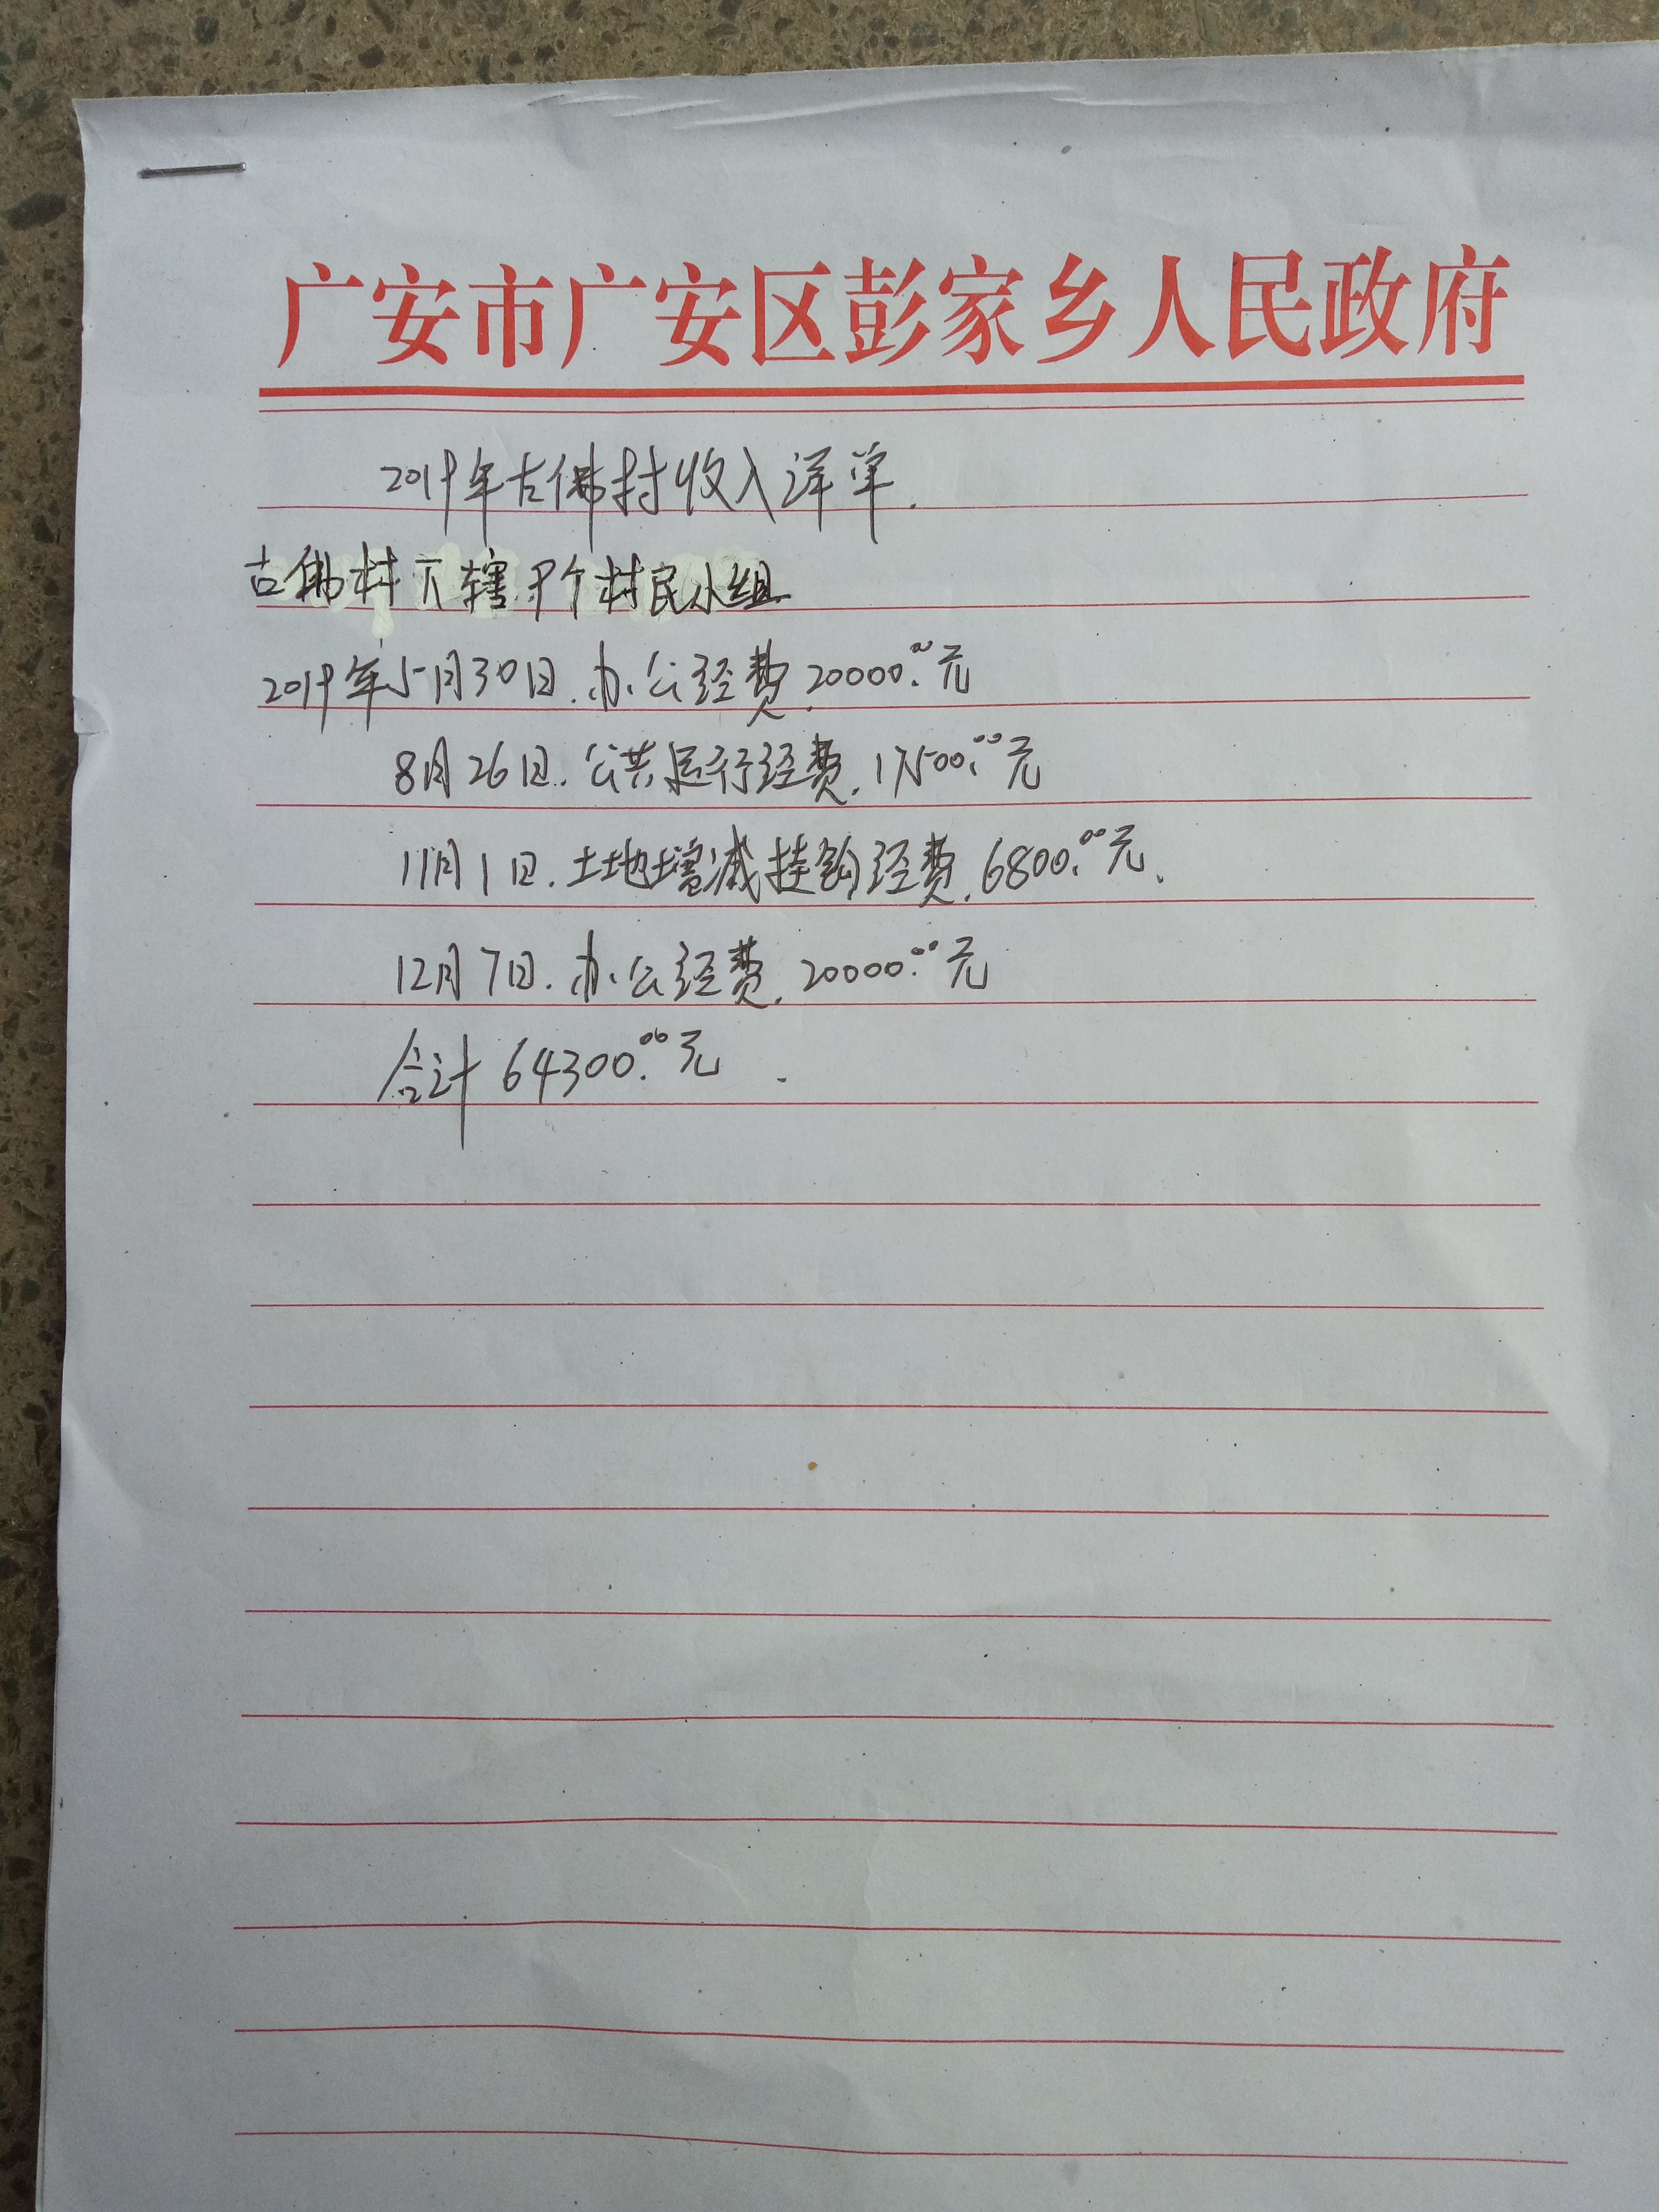 广安市广安区彭家乡人民政府
2019年古佛村收入详单.
古佛村下辖9个村民小组
2019年5月30日.办公经费.20000.00元
8月26日.公共运行经费.17500.00元
11月1日.土地增减挂钩经费.6800.00元.
12月7日.办公经费.20000.00元
合计64300.00元.